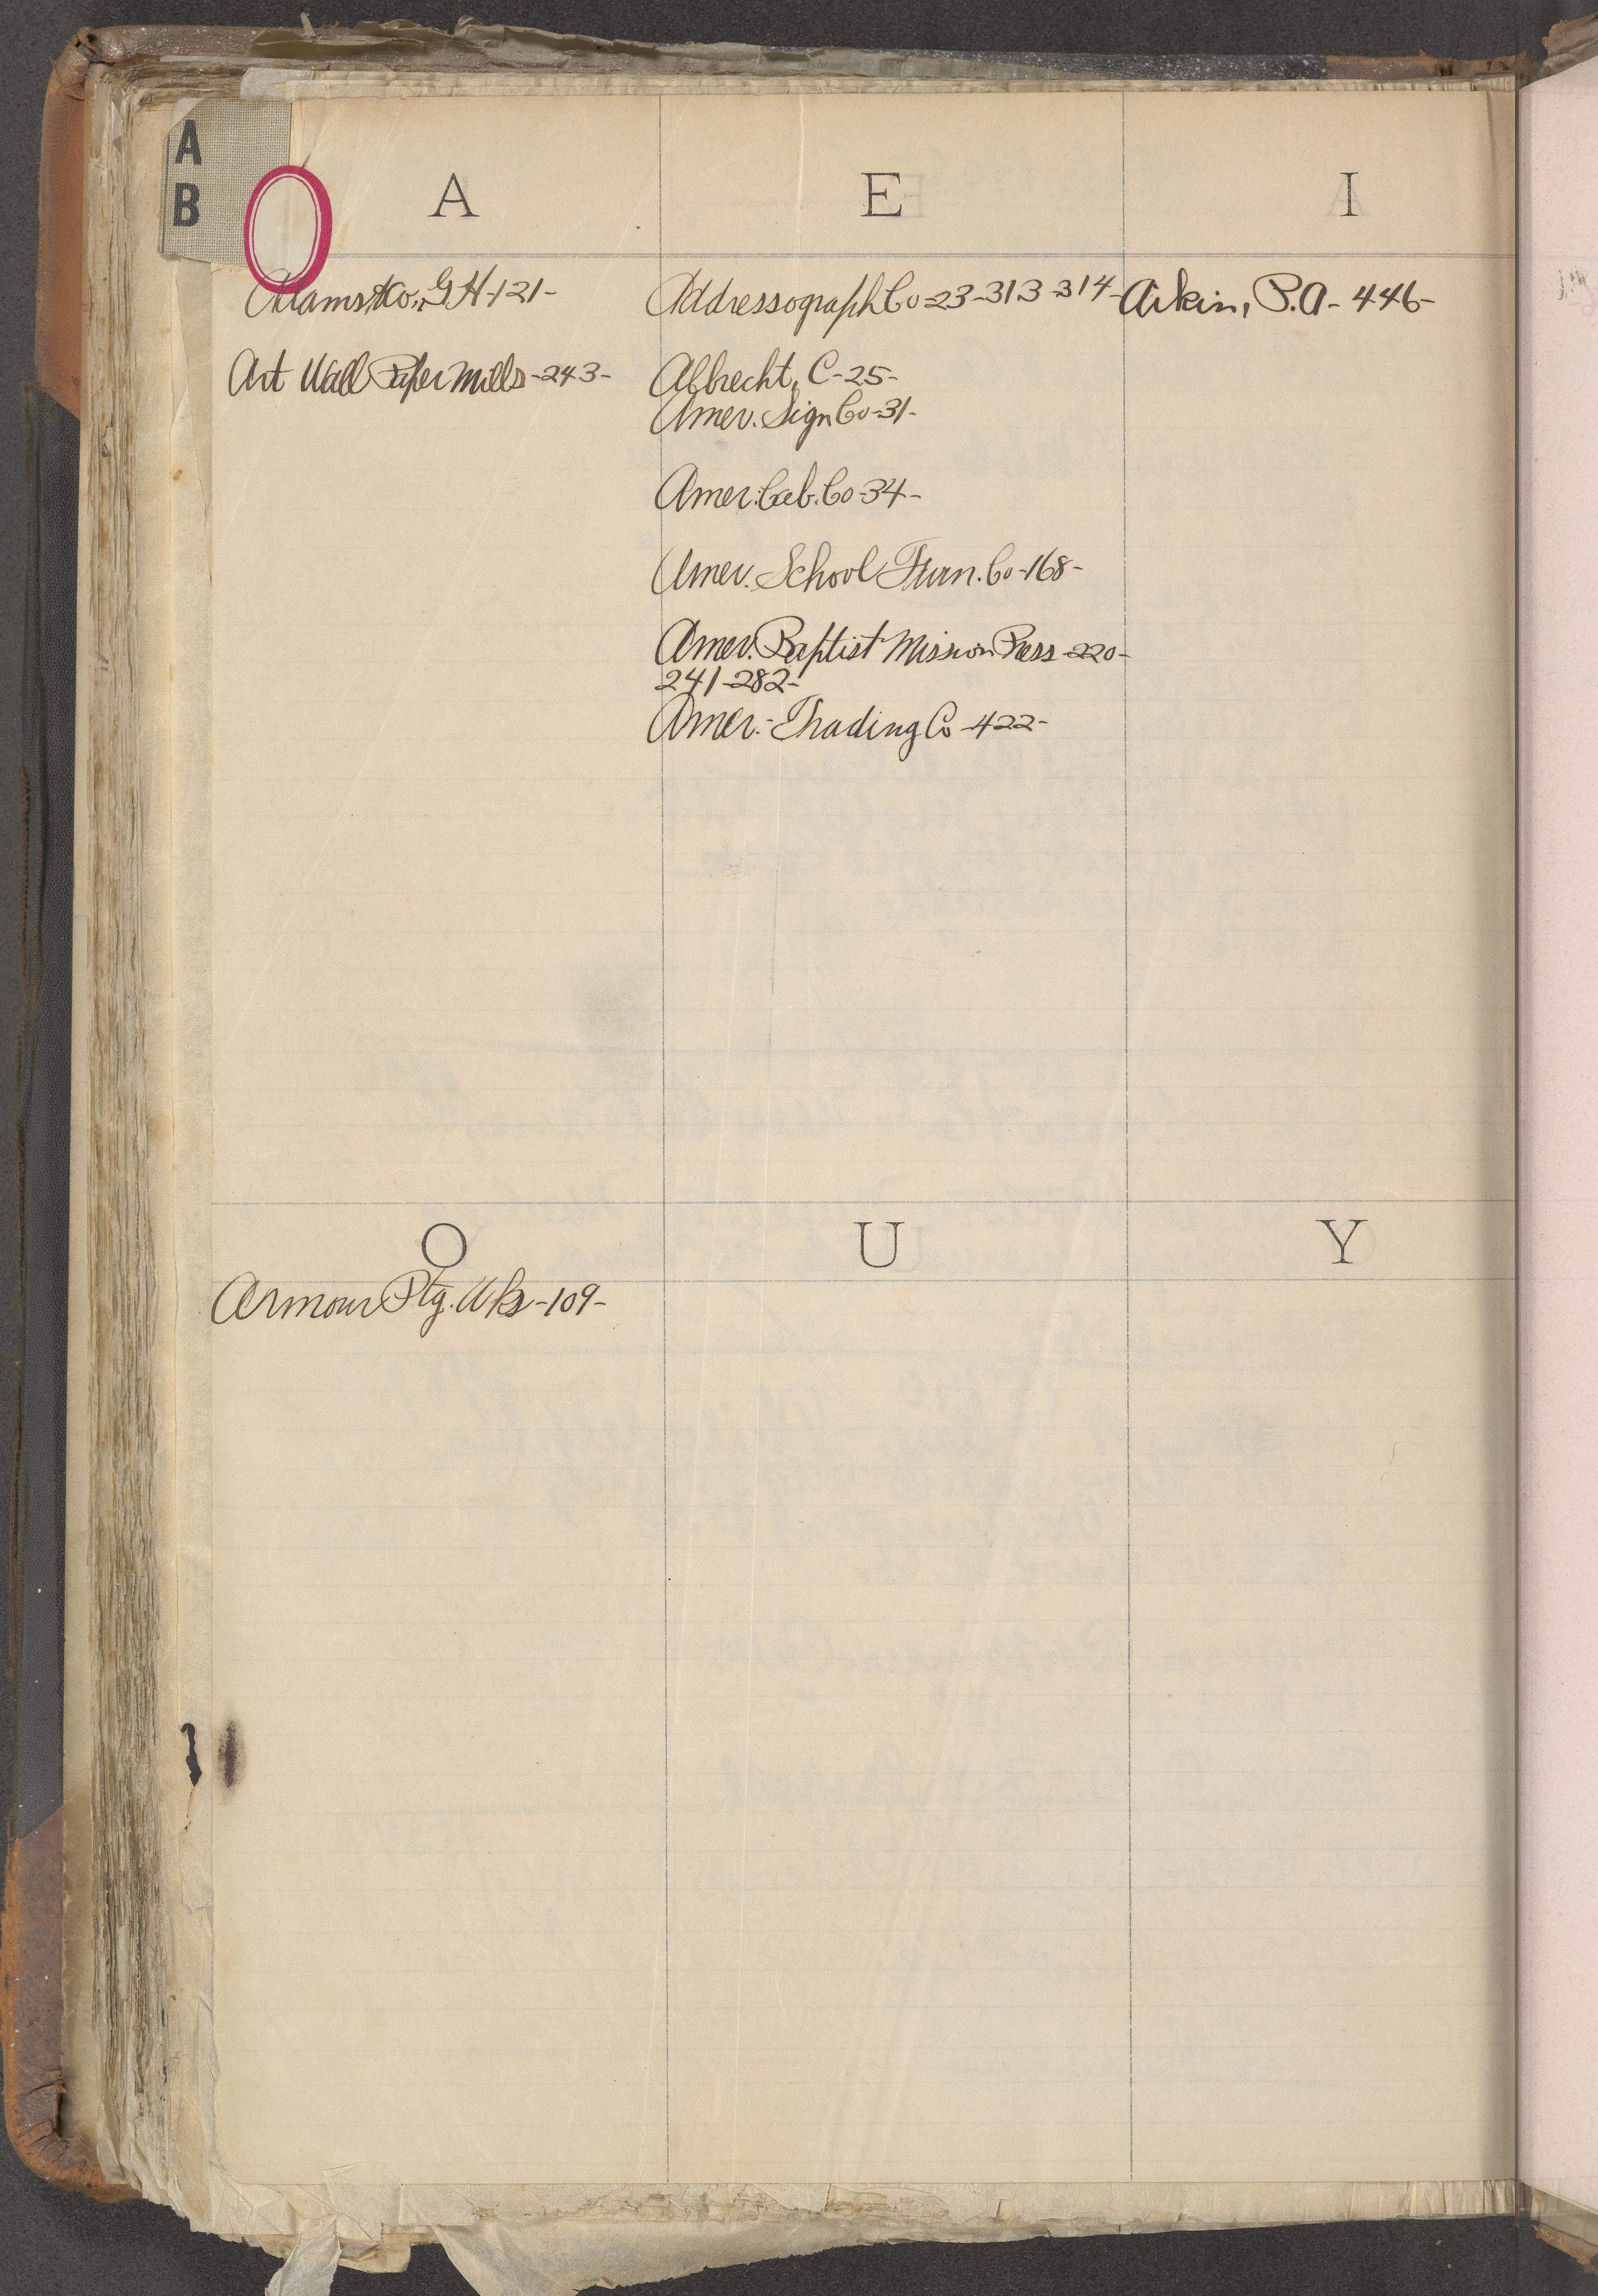 A
B
A
Adams & Co., G.H-121-
Art Wall Paper Mills-243-
E
Addressograph Co-23-313-314-
Albrecht, C-25-
Amer. Sign Co-31-
Amer. Cab. Co-34-
Amer. School Furn. Co-168-
Amer. Baptist Mission Press-220-
241-282-
Amer. Trading Co-422-
I
Aikin, P.A-446-
O
Armour Ptg. Wks-109-
U
Y